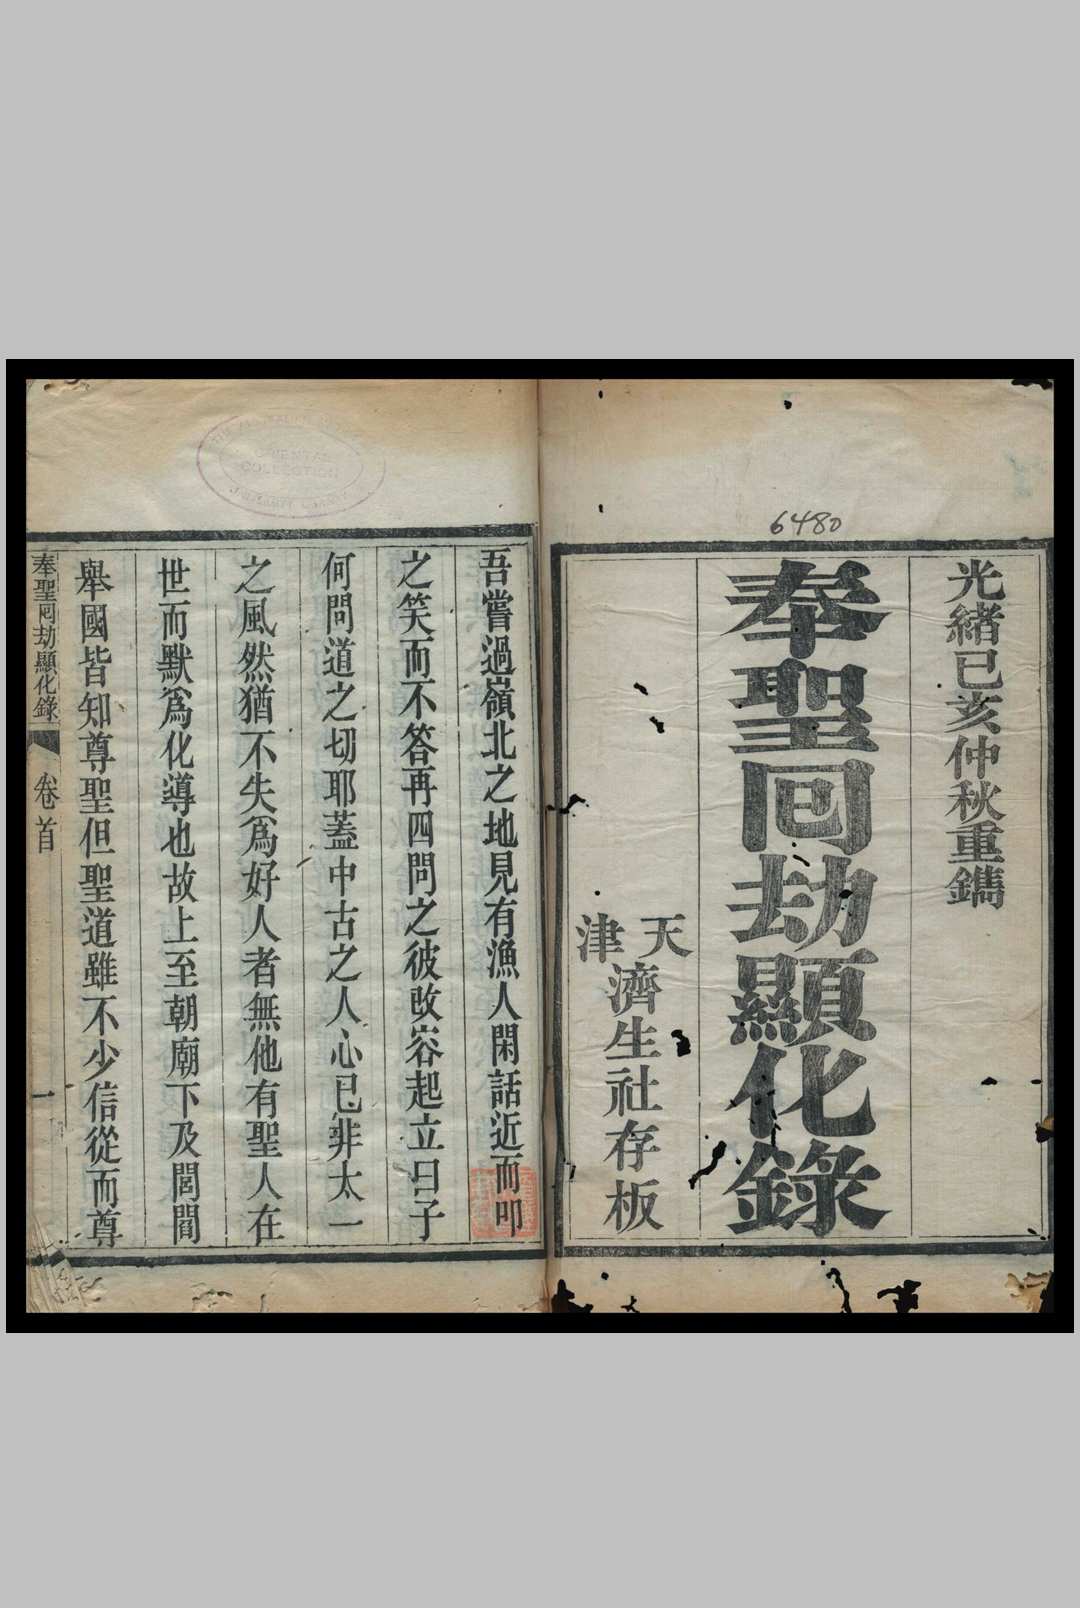 6480
光緒己亥仲秋重鐫
奉聖回劫顯化錄
天津
濟生社存板
ORIENTAL
COLLECTION
吾嘗過嶺北之地見有漁人閑話近而叩
之笑而不答再四問之彼改容起立曰子
何問道之切耶蓋中古之人心已非太一
之風然猶不失爲好人者無他有聖人在
世而默爲化導也故上至朝廟下及閭閻
舉國皆知尊聖但聖道雖不少信從而尊
奉聖囘劫顯化錄
卷首
一